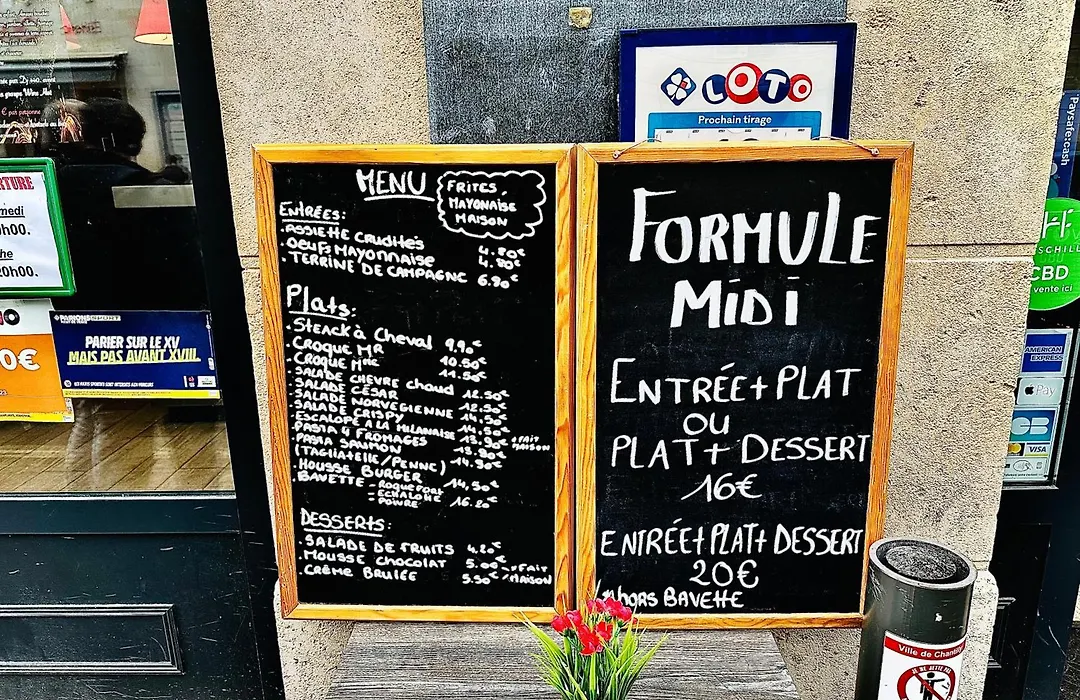 MENU
FRITES,
MAYONAISE
MAISON
ENTRÉES:
.ASSIETTE CRUDITÉS 4.80€
.OEUFS MAYONNAISE 4.80€
.TERRINE DE CAMPAGNE 6.90€
Plats:
.STEACK à CHEVAL 9.90€
.CROQUE MR 10.50€
.CROQUE MME 11.50€
.SALADE CHEVRE chaud 12.50€
.SALADE CÉSAR 12.50€
.SALADE NORVEGIENNE 14.50€
.SALADE CRISPY 14.50€
.ESCALOPE A LA MILANAISE 13.90€ *FAIT MAISON
.PASTA 4 FROMAGES 13.80€
.PASTA SAUMON 14.90€
(TAGLIATELLE/PENNE)
.HOUSSE BURGER 14,50€
.BAVETTE - ROQUEFORT
- ECHALOTE 16.20€
- POIVRE
DESSERTS:
.SALADE DE FRUITS 4.20€
.MOUSSE CHOCOLAT 5.00€ *FAIT
.CRÊME BRULÉE 5.50€ *MAISON
FORMULE
MIDI
ENTRÉE+PLAT
OU
PLAT+ DESSERT
16€
ENTRÉE+PLAT+ DESSERT
20€
*hors BAVETTE
LOTO
Prochain tirage
PARIONS SPORT
PARIER SUR LE XV
MAIS PAS AVANT XVIII.
0€
Paysafe:cash
CBD
vente ici
AMERICAN
EXPRESS
Pay
CB
VISA
Ville de Chantilly
JE NE JETTE PAS